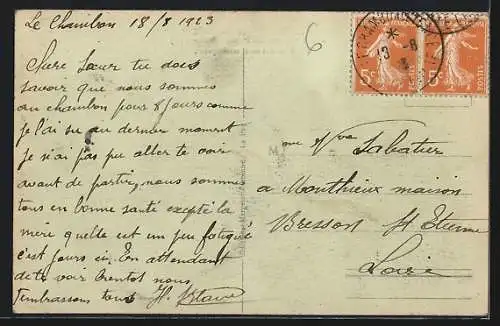 Le Chambon 18/8 1923
6
Chère Sœur tu dois
savoir que nous sommes
au chambon pour 8 jours comme
je l'ai su au dernier moment
je n'ai pas pu aller te voir
avant de partir, nous sommes
tous en bonne santé excepté la
mère quelle est un peu fatigué
c'est jours ci. En attendant
de te voir bientot nous
t'embrassons tous
5c
POSTES
5c
POSTES
13 - 8
me Vve Sabatier
a Monthieux maison
Bresson St Etienne
Loire